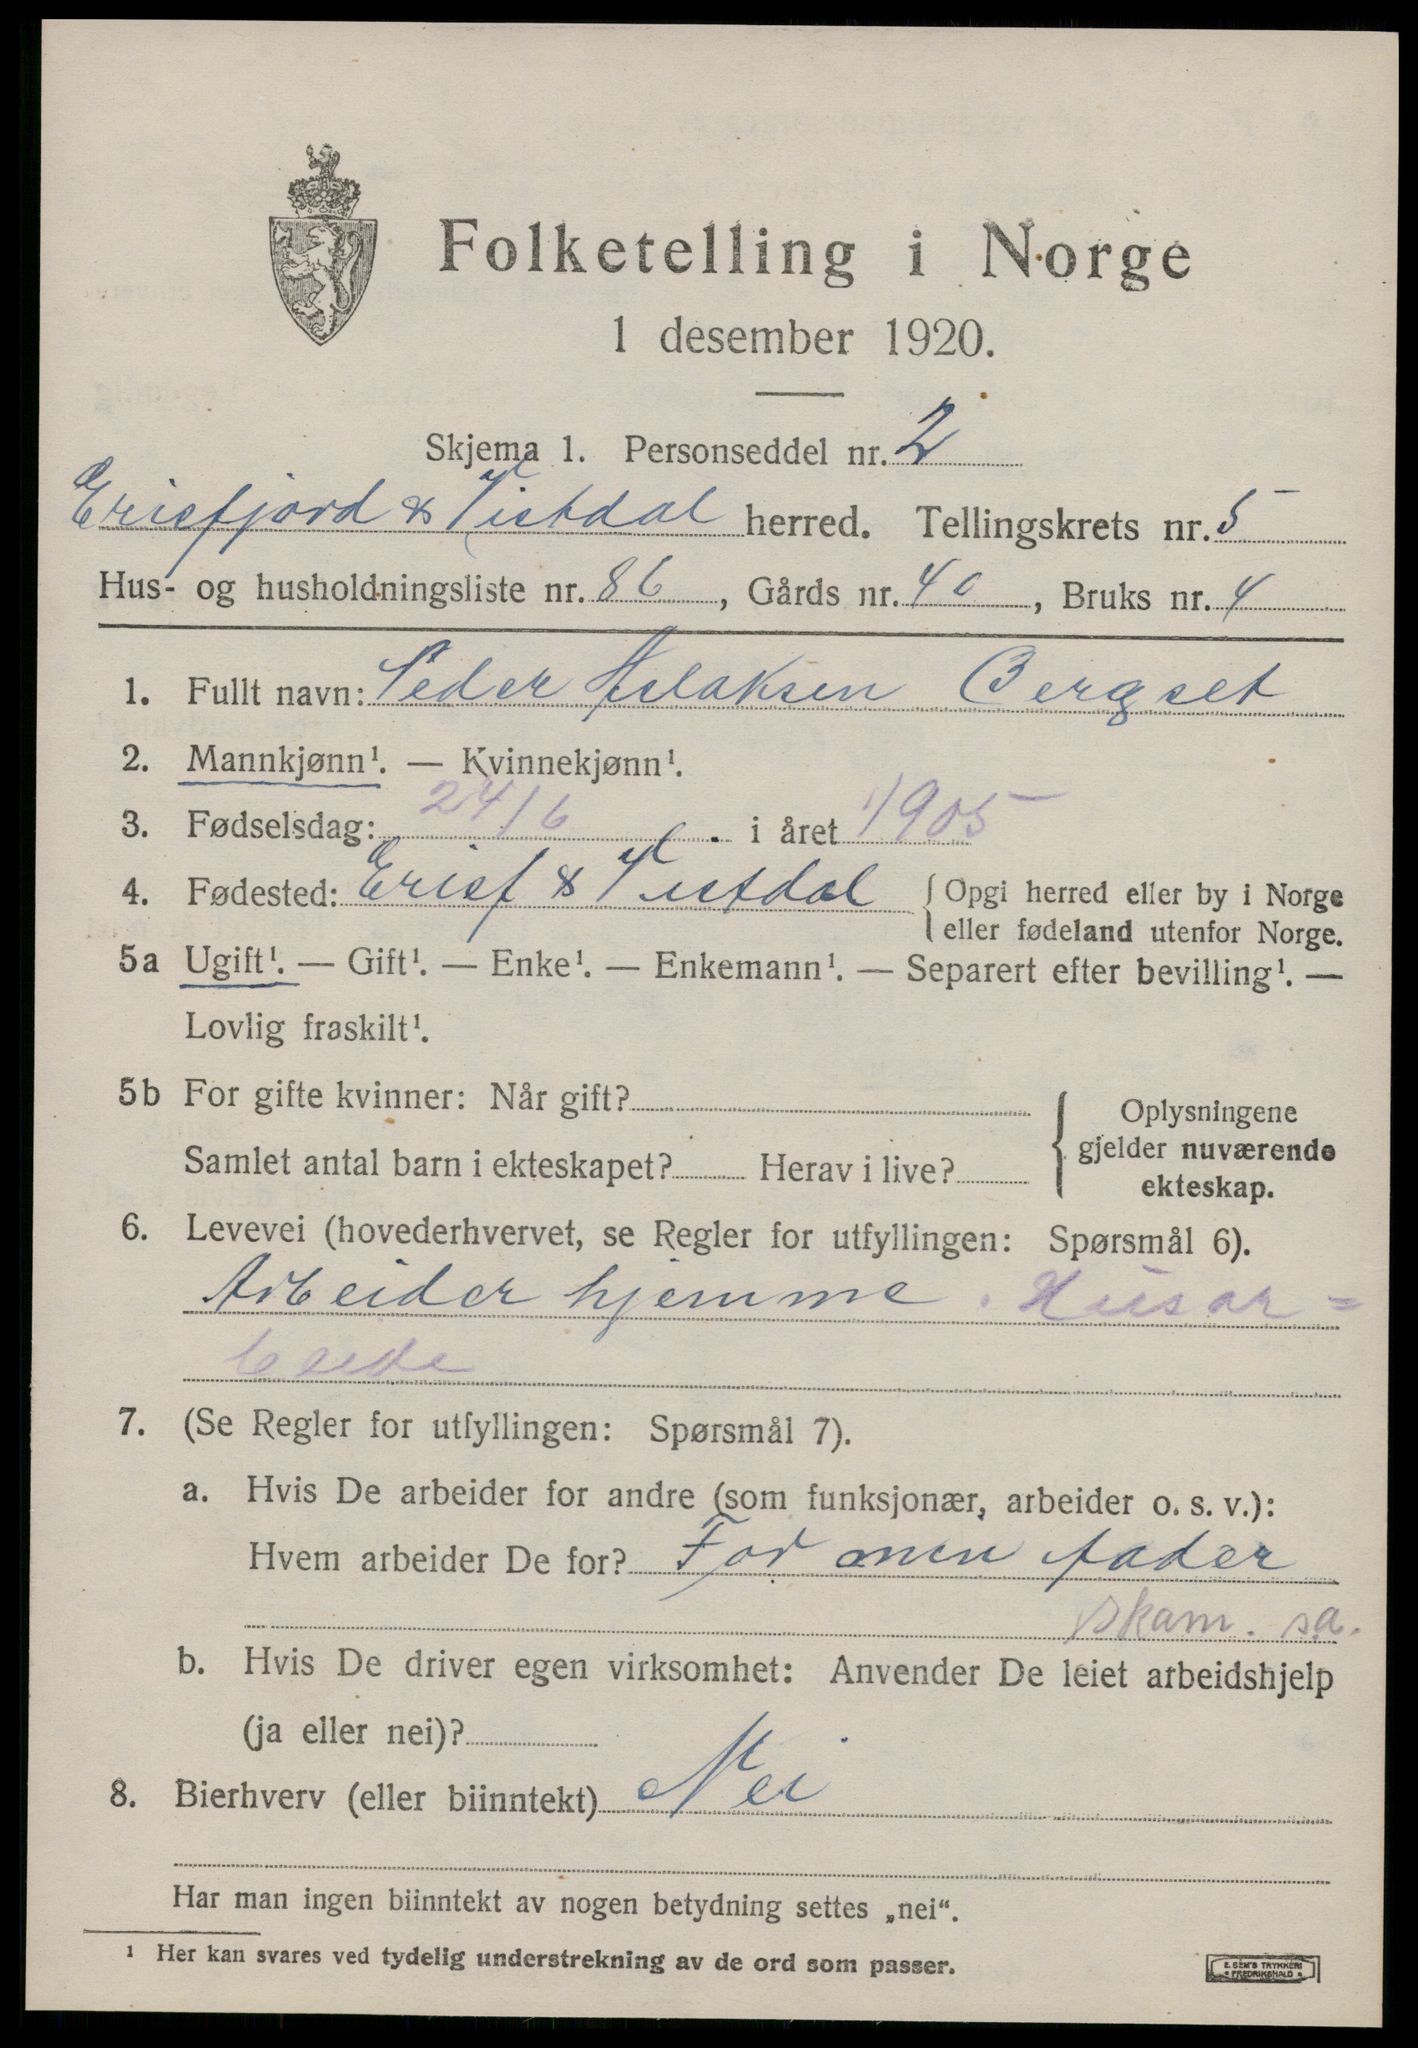 Folketelling i Norge
1 desember 1920.
Skjema 1. Personseddel nr. 2
Erisfjord & Vistdal herred. Tellingskrets nr. 5
Hus- og husholdningsliste nr. 86, Gårds nr. 40, Bruks nr. 4
1. Fullt navn: Peder Aslaksen Bergset
2. Mannkjønn¹. — Kvinnekjønn¹.
3. Fødselsdag: 24/6 . i året 1905
4. Fødested: Erisf & Vistdal { Opgi herred eller by i Norge
eller fødeland utenfor Norge.
5a Ugift¹. — Gift¹. — Enke¹. — Enkemann¹. — Separert efter bevilling¹. —
Lovlig fraskilt¹.
5b For gifte kvinner: Når gift?
Samlet antal barn i ekteskapet? Herav i live?
{ Oplysningene
gjelder nuværende
ekteskap.
6. Levevei (hovederhvervet, se Regler for utfyllingen: Spørsmål 6).
Arbeider hjemme. Husar=
beide
7. (Se Regler for utfyllingen: Spørsmål 7).
a. Hvis De arbeider for andre (som funksjonær, arbeider o. s. v.):
Hvem arbeider De for? For min fader
skam. sa.
b. Hvis De driver egen virksomhet: Anvender De leiet arbeidshjelp
(ja eller nei)?
8. Bierhverv (eller biinntekt) Nei
Har man ingen biinntekt av nogen betydning settes „nei“.
¹ Her kan svares ved tydelig understrekning av de ord som passer.
E. SEM'S TRYKKERI
FREDRIKSHALD